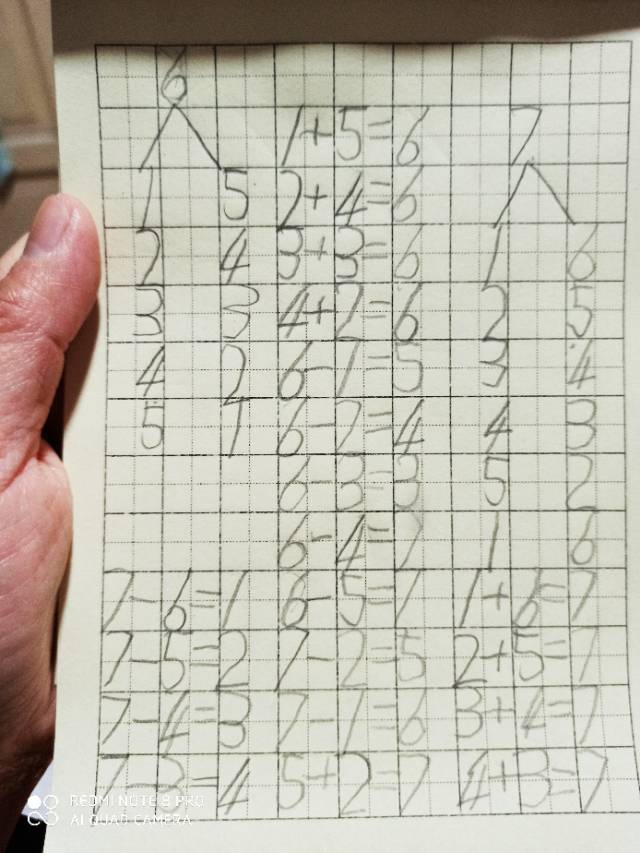 6
1+5=6 7
1 5 2+4=6
2 4 3+3=6 1 6
3 3 4+2=6 2 5
4 2 6-1=5 3 4
5 1 6-2=4 4 3
6-3=3 5 2
6-4= 1 6
7-6=1 6-5=1 1+6=7
7-5=2 7-2=5 2+5=7
7-4=3 7-1=6 3+4=7
7-3=4 5+2=7 4+3=7
REDMI NOTE 8 PRO
AI QUAD CAMERA